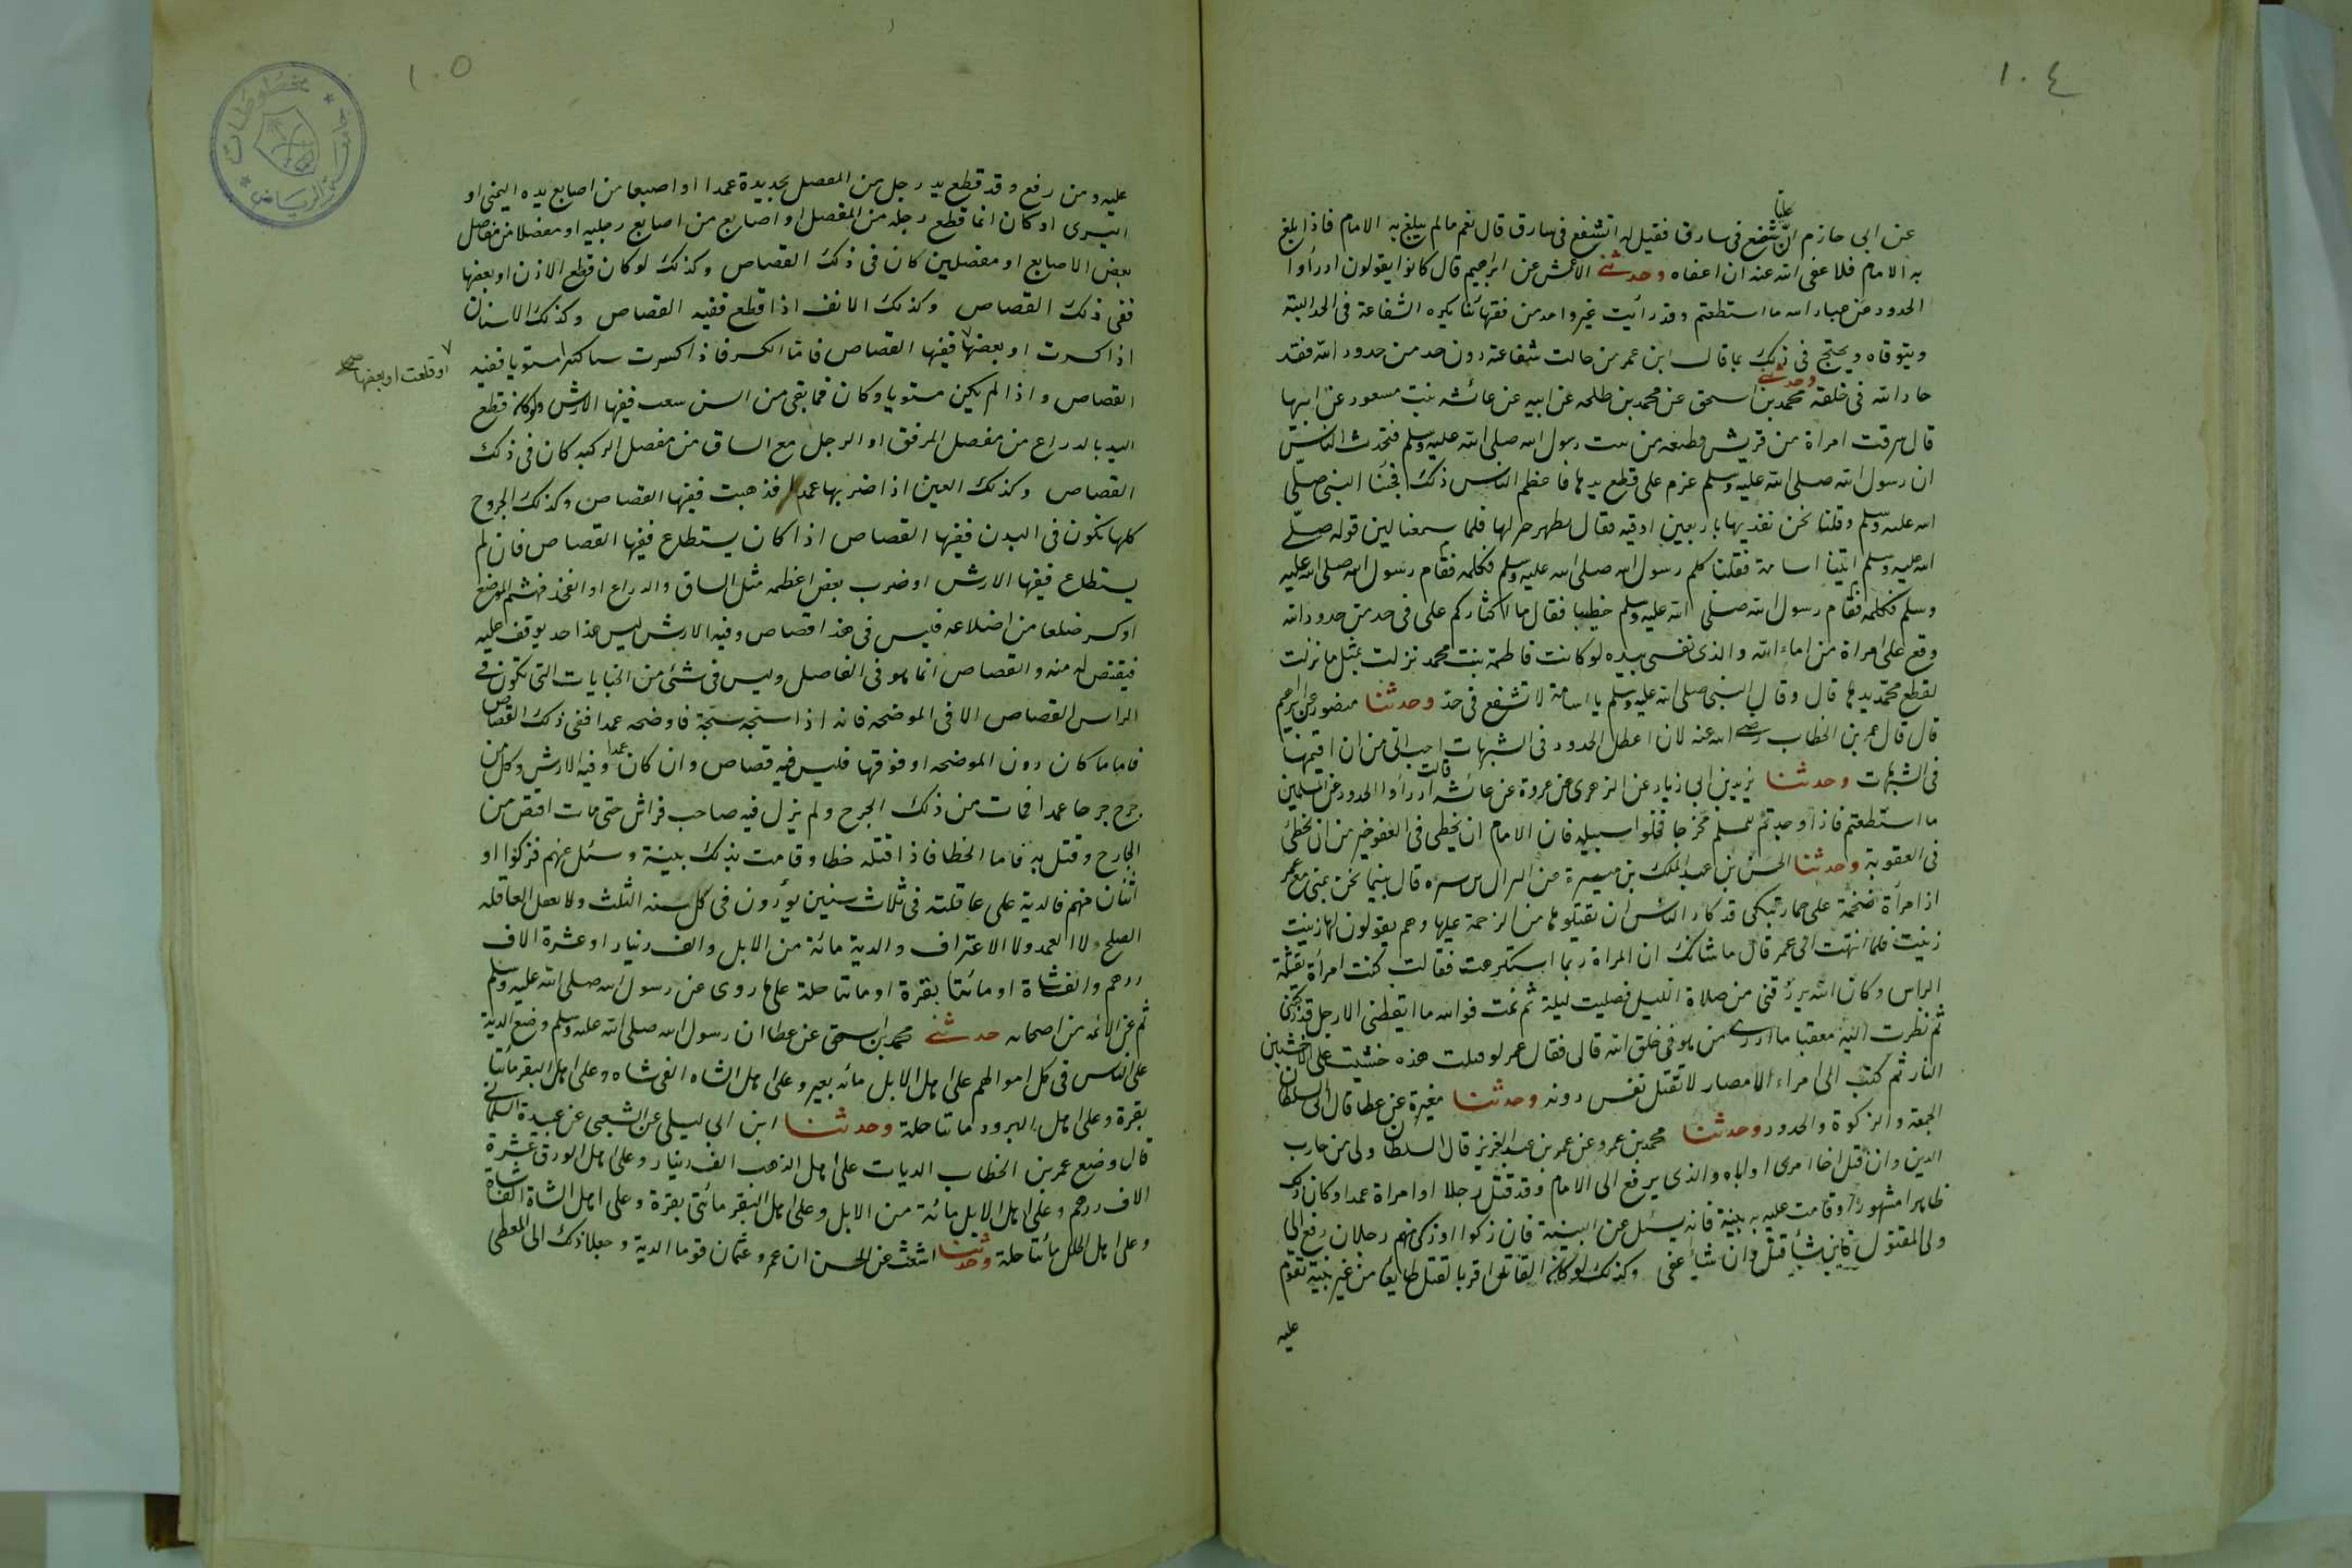 ١٠٤
عن ابى حازم انّ عليا شفع فى سارق فقيل له اتشفع فى سارق قال نعم ما لم يبلغ به الامام فاذا بلغ
به الامام فلا عفى الله عنه ان اعفاه وحدثنى الاعمش عن ابراهيم قال كانوا يقولون ادرأوا
الحدود عن عباد الله ما استطعتم وقد رأيت غير واحد من فقهائنا يكره الشفاعة فى الحد البتة
ويتوقاه ويحتج فى ذلك بما قال ابن عمر من حالت شفاعته دون حد من حدود الله فقد
حاد الله فى خلقه وحدثنى محمد بن اسحق عن محمد بن طلحه عن ابيه عن عائشه بنت مسعود عن ابيها
قال سرقت امراة من قريش قطيفه من بيت رسول الله صلى الله عليه وسلم فتحدث الناس
ان رسول الله صلى الله عليه وسلم عزم على قطع يدها فاعظم الناس ذلك فجئنا النبى صلى
الله عليه وسلم وقلنا نحن نفديها باربعين اوقيه فقال تطهر خير لها فلما سمعنا لين قوله صلى
الله عليه وسلم اتينا اسامة فقلنا كلم رسول الله صلى الله عليه وسلم فكلمه فقام رسول الله صلى الله عليه
وسلم فكلمه فقام رسول الله صلى الله عليه وسلم خطيبا فقال ما اكثاركم على فى حد من حدود الله
وقع على امراة من اماء الله والذى نفسى بيده لو كانت فاطمة بنت محمد نزلت بمثل ما نزلت
لقطع محمد يدها قال وقال النبى صلى الله عليه وسلم يا اسامة لا تشفع فى حد وحدثنا منصور عن ابراهيم
قال قال عمر بن الخطاب رضى الله عنه لان اعطل الحدود فى الشبهات احب الى من ان اقيمها
فى الشبهات وحدثنا يزيد بن ابى زياد عن الزهرى عن عروة عن عائشه قالت ادرأوا الحدود عن المسلمين
ما استطعتم فاذا وجدتم للمسلم مخرجا فخلوا سبيله فان الامام ان يخطى فى العفو خير من ان يخطئ
فى العقوبة وحدثنا الحسن بن عبد الملك بن ميسرة عن النزال بن سبره قال بينما نحن بمنى مع عمر
اذا مرأة ضخمة على حمار تبكى قد كاد الناس ان يقتلوها من الزحمة عليها وهم يقولون لها زنيت
زنيت فلما انتهت الى عمر قال ما شانك ان المراة ربما استكرهت فقالت كنت امرأة ثقيلة
الراس وكان الله يرزقنى من صلاة الليل فصليت ليلة ثم نمت فوالله ما ايقظنى الا رجل قد ركبنى
ثم نظرت اليه معقبا ما ادرى من هو فى خلق الله قال فقال عمر لو قتلت هذه خشيت على الاخشبين
النار ثم كتب الى امراء الامصار لا تقتل نفس دونه وحدثنا مغيرة عن عطا قال الى السلطان
الجمعة والزكوة والحدود وحدثنا محمد بن عمرو عن عمر بن عبد العزيز قال السلطان ولى من حارب
الدين وان قتل اخا امرى او اباه والذى يرفع الى الامام وقد قتل رجلا او امراة عمدا وكان ذلك
ظاهرا مشهورا وقامت عليه به بينة فانه يسئل عن البينة فان زكوا او زكى منهم رجلان رفع الى
ولى المقتول فان شأ قتل وان شأ عفى وكذلك لو كان القاتل اقر بالقتل طايعا من غير بينة تقوم
عليه
١٠٥
عليه ومن رفع وقد قطع يد رجل من المفصل بحديدة عمدا او اصبعا من اصابع يده اليمنى او
اليسرى او كان انما قطع رجله من المفصل او اصابع من اصابع رجليه او مفصلا من مفاصل
بعض الاصابع او مفصلين كان فى ذلك القصاص وكذلك لو كان قطع الاذن او بعضها
ففى ذلك القصاص وكذلك الانف اذا قطع ففيه القصاص وكذلك الاسنان
اذا كسرت او بعضها ففيها القصاص فاما الكسر فاذا كسرت ساكتها مستويا ففيه
او قلعت او بعضها صح
القصاص واذا لم يكن مستويا وكان فما بقى من السن شعب ففيها الارش ولو كان قطع
اليد بالدراع من مفصل المرفق او الرجل مع الساق من مفصل الركبه كان فى ذلك
القصاص وكذلك العين اذا ضربها عمدا فذهبت ففيها القصاص وكذلك الجروح
كلها تكون فى البدن ففيها القصاص اذا كان يستطاع ففيها القصاص فان لم
يستطاع ففيها الارش او ضرب بعض اعظمه مثل الساق والدراع او الفخذ فهشم الموضع
او كسر ضلعا من اضلاعه فليس فى هذا قصاص وفيه الارش ليس هذا حد يوقف عليه
فيقتص له منه والقصاص انما هو فى المفاصل وليس فى شئ من الجنايات التى تكون فى
الراس القصاص الا فى الموضحه فانه اذا شجه شجة فاوضحه عمدا ففى ذلك القصاص
فاما ما كان دون الموضحه او فوقها فليس فيه قصاص وان كان عمدا وفيه الارش وكل من
جرح جرحا عمدا فمات من ذلك الجرح ولم يزل فيه صاحب فراش حتى مات اقتص من
الجارح وقتل به فاما الخطا فاذا قتله خطا وقامت بذلك بينة وسئل عنهم فزكوا او
اثنان منهم فالدية على عاقلته فى ثلاث سنين يؤدون فى كل سنه الثلث ولا تعقل العاقله
الصلح ولا العمد ولا الاعتراف والدية مائة من الابل والف دينار او عشرة الاف
درهم والف شاة او مائتا بقرة او مائتا حلة على ما روى عن رسول الله صلى الله عليه وسلم
ثم عن الائمه من اصحابه حدثنى محمد بن اسحق عن عطا ان رسول الله صلى الله عليه وسلم وضع الدية
على الناس فى كل اموالهم على اهل الابل مائه بعير وعلى اهل الشاه الفى شاه وعلى اهل البقر مأتا
بقرة وعلى اهل البرود مائتا حلة وحدثنا ابن ابى ليلى عن الشعبى عن عبيدة السلمانى
قال وضع عمر بن الخطاب الديات على اهل الذهب الف دينار وعلى اهل الورق عشرة
الاف درهم وعلى اهل الابل مائة من الابل وعلى اهل البقر مائتى بقرة وعلى اهل الشاة الفا شاة
وعلى اهل الحلل مائتا حلة وحدثنا اشعث عن الحسن ان عمر وعثمان قوما الدية وجعلا ذلك الى المعطى